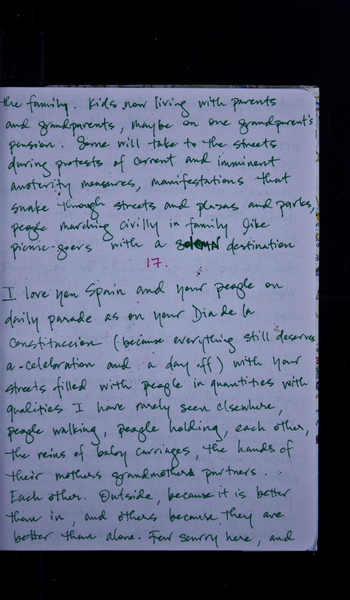 the family. Kids now living with parents
and grandparents, maybe on one grandparent's
pension. Some will take to the streets
during protests of current and imminent
austerity measures, manifestations that
snake though streets and plazas and parks,
people marching civilly in family like
picnic-goers with a solemn destination
17.
I love you Spain and your people on
daily parade as on your Dia de la
Constituccion (because everything still deserves
a celebration and a day off) with your
streets filled with people in quantities with
qualities I have rarely seen elsewhere,
people walking, people holding, each other,
the reins of baby carriages, the hands of
their mothers grandmothers partners.
Each other. Outside, because it is better
than in, and others because they are
better than alone. Few scurry here, and